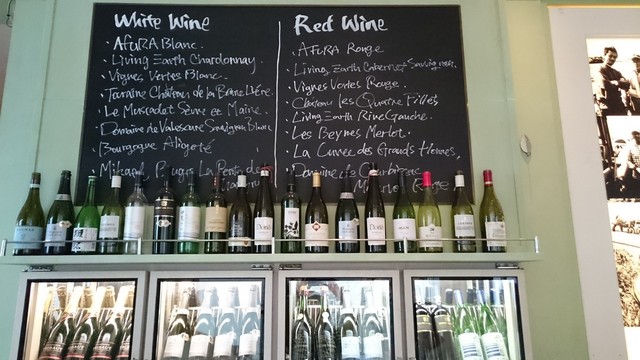 White Wine
· AfuRA Blanc.
· Living Earth Chardonnay.
· Vignes Vertes Blanc.
Touraine Château de la
· Le Muscadet Sèvre et Maine.
· Domaine de Sauvignon Blanc
Bourgogne Aligoté
La
Red Wine
· AFURA Rouge
· Living Earth Cabernet Sauvignon.
· Vignes Vertes Rouge.
· Chateau les Quatre Filles
· Living Earth Rive Gauche.
· Les Beymes Merlot.
· La Cuvée des Grands Hommes,
Domaine de
Merlot